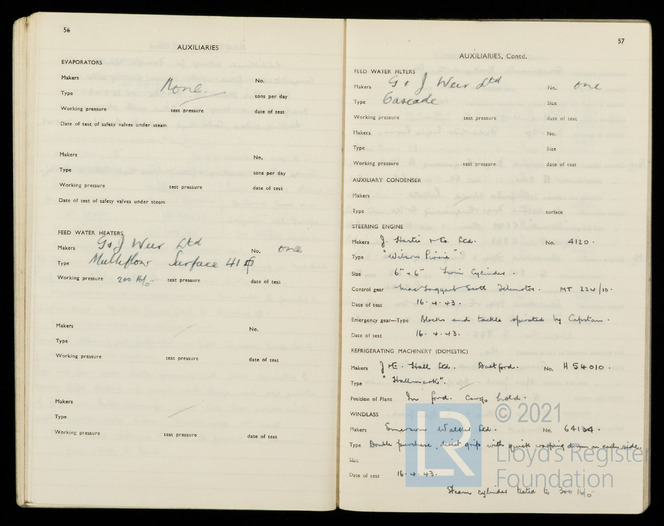 56
AUXILIARIES
EVAPORATORS
Makers None. No.
Type tons per day
Working pressure test pressure date of test
Date of test of safety valves under steam
Makers No.
Type tons per day
Working pressure test pressure date of test
Date of test of safety valves under steam
FEED WATER HEATERS
Makers G & J Weir Ltd No. one
Type Multiflow Surface 41
Working pressure 200 lb/□" test pressure date of test
Makers No.
Type
Working pressure test pressure date of test
Makers
Type
Working pressure test pressure date of test
57
AUXILIARIES, Contd.
FEED WATER FILTERS
Makers G & J Weir Ltd No. one
Type Cascade Size
Working pressure test pressure date of test
Makers No.
Type Size
Working pressure test pressure date of test
AUXILIARY CONDENSER
Makers
Type surface
STEERING ENGINE
Makers J. Hastie & Co. Ltd. No. 4120.
Type "Wilson Pirrie"
Size 6" x 6" Twin Cylinder.
Control gear MacTaggart Scott Telemotor. MT 234/10.
Date of test 16.4.43.
Emergency gear—Type Blocks and tackle operated by Capstan.
Date of test 16.4.43.
REFRIGERATING MACHINERY (DOMESTIC)
Makers J & E. Hall Ltd. Dartford. No. H 54010.
Type "Hallmark".
Position of Plant In ford. Cargo hold.
WINDLASS
Makers Emerson Walker Ltd. No. 64134
Type Double purchase, direct grip with quick warping drum on each side.
Size
Date of test 16.4.43.
Steam cylinder tested to 300 lb/□"
LR
© 2021
Lloyd's Register
Foundation